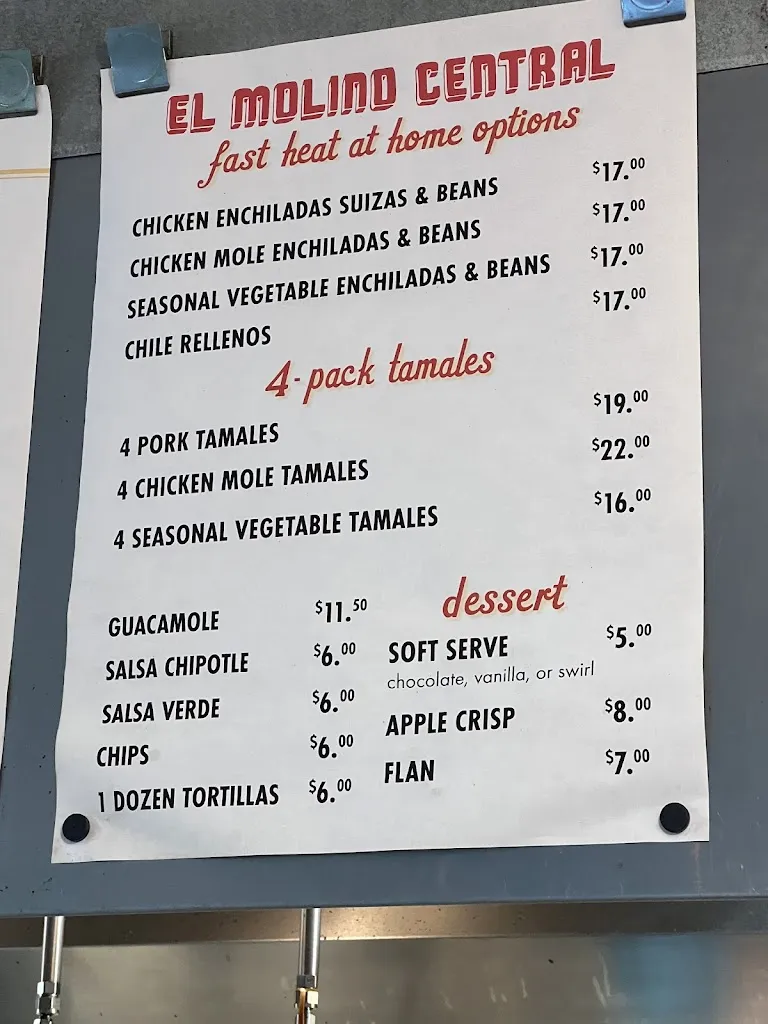 EL MOLINO CENTRAL
fast heat at home options
CHICKEN ENCHILADAS SUIZAS & BEANS $17.00
CHICKEN MOLE ENCHILADAS & BEANS $17.00
SEASONAL VEGETABLE ENCHILADAS & BEANS $17.00
CHILE RELLENOS $17.00
4-pack tamales
4 PORK TAMALES $19.00
4 CHICKEN MOLE TAMALES $22.00
4 SEASONAL VEGETABLE TAMALES $16.00
GUACAMOLE $11.50
SALSA CHIPOTLE $6.00
SALSA VERDE $6.00
CHIPS $6.00
1 DOZEN TORTILLAS $6.00
dessert
SOFT SERVE $5.00
chocolate, vanilla, or swirl
APPLE CRISP $8.00
FLAN $7.00